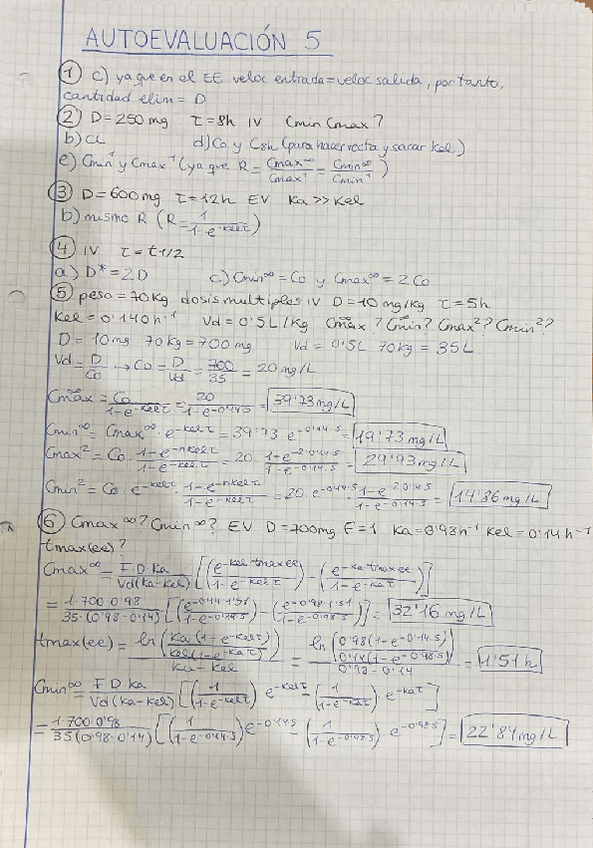 AUTOEVALUACIÓN 5
① c) ya que en el EE veloc entrada = veloc salida, por tanto,
cantidad elim = D
② D = 250 mg τ = 8h IV Cmin Cmax?
b) CL d) C0 y C8h (para hacer recta y sacar kel)
e) Cmin¹ y Cmax¹ (ya que R = Cmax∞/Cmax¹ = Cmin∞/Cmin¹)
③ D = 600 mg τ = 12h EV Ka >> Kel
b) mismo R (R = 1/(1-e^-kelτ))
④ IV τ = t1/2
a) D* = 2D c) Cmin∞ = C0 y Cmax∞ = 2C0
⑤ peso = 70Kg dosis multiples IV D = 10 mg/kg τ = 5h
Kel = 0'140 h⁻¹ Vd = 0'5 L/Kg Cmax∞? Cmin∞? Cmax²? Cmin²?
D = 10mg · 70 kg = 700 mg Vd = 0'5L · 70kg = 35L
Vd = D/C0 → C0 = D/Vd = 700/35 = 20 mg/L
Cmax∞ = C0/(1-e^-kelτ) = 20/(1-e^-0'14·5) = 39'73 mg/L
Cmin∞ = Cmax∞ · e^-kelτ = 39'73 · e^-0'14·5 = 19'73 mg/L
Cmax² = C0 · (1-e^-nkelτ)/(1-e^-kelτ) = 20 · (1-e^-2·0'14·5)/(1-e^-0'14·5) = 29'93 mg/L
Cmin² = C0 · e^-kelτ · (1-e^-nkelτ)/(1-e^-kelτ) = 20 · e^-0'14·5 · (1-e^-2·0'14·5)/(1-e^-0'14·5) = 14'86 mg/L
⑥ Cmax∞? Cmin∞? EV D = 700mg F = 1 Ka = 0'98 h⁻¹ Kel = 0'14 h⁻¹
tmax(ee)?
Cmax∞ = F·D·Ka/(Vd(Ka-Kel)) [(e^-kel·tmaxee/(1-e^-kelτ)) - (e^-ka·tmaxee/(1-e^-kaτ))]
= 1·700·0'98/(35·(0'98-0'14)) [(e^-0'14·1'51/(1-e^-0'14·5)) - (e^-0'98·1'51/(1-e^-0'98·5))] = 32'16 mg/L
tmax(ee) = ln(Ka(1-e^-kelτ)/(kel(1-e^-kaτ)))/(Ka-Kel) = ln(0'98(1-e^-0'14·5)/(0'14(1-e^-0'98·5)))/(0'98-0'14) = 1'51 h
Cmin∞ = F·D·Ka/(Vd(Ka-Kel)) [(1/(1-e^-kelτ)) · e^-kelτ - (1/(1-e^-kaτ)) · e^-kaτ]
= 1·700·0'98/(35(0'98-0'14)) [(1/(1-e^-0'14·5)) e^-0'14·5 - (1/(1-e^-0'98·5)) · e^-0'98·5] = 22'84 mg/L